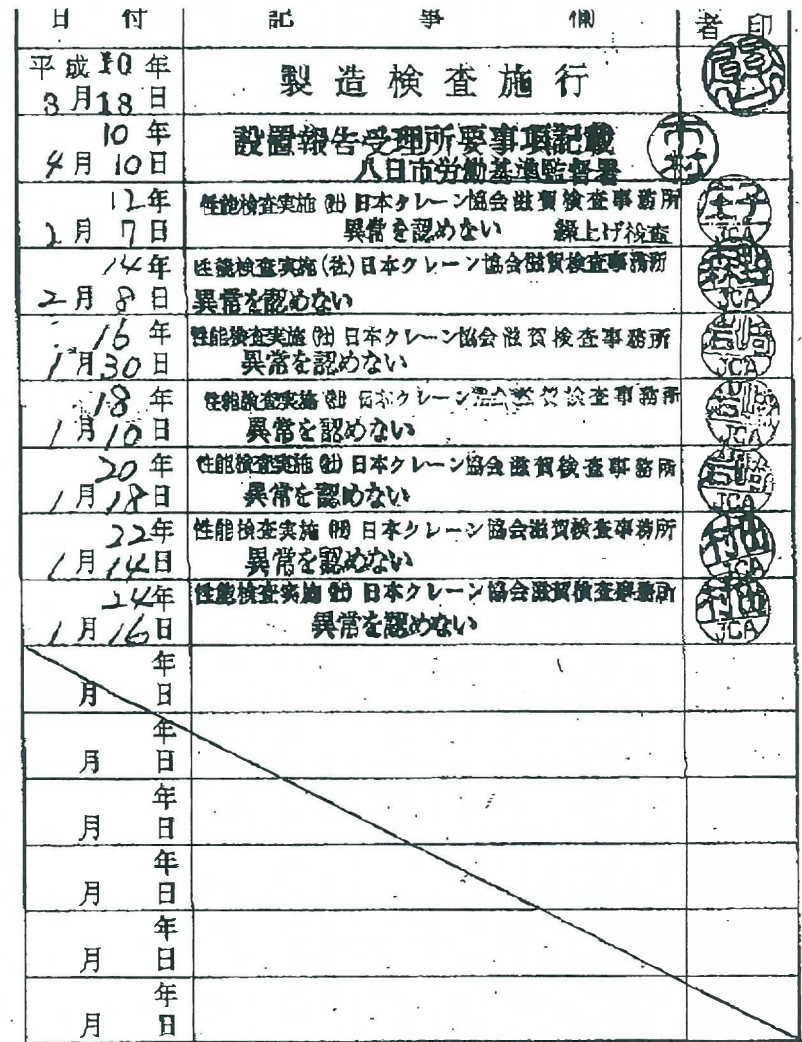 日 付 記 事 欄 者 印
平成10年
3月18日
製造検査施行
10年
4月10日
設置報告受理所要事項記載
八日市労働基準監督署
市村
12年
2月7日
性能検査実施(社)日本クレーン協会滋賀検査事務所
異常を認めない 繰上げ検査
JCA
14年
2月8日
性能検査実施(社)日本クレーン協会滋賀検査事務所
異常を認めない
JCA
16年
1月30日
性能検査実施(社)日本クレーン協会滋賀検査事務所
異常を認めない
JCA
18年
1月10日
性能検査実施(社)日本クレーン協会滋賀検査事務所
異常を認めない
JCA
20年
1月18日
性能検査実施(社)日本クレーン協会滋賀検査事務所
異常を認めない
JCA
22年
1月14日
性能検査実施(社)日本クレーン協会滋賀検査事務所
異常を認めない
村山
JCA
24年
1月16日
性能検査実施(社)日本クレーン協会滋賀検査事務所
異常を認めない
村山
JCA
年
月 日
年
月 日
年
月 日
年
月 日
年
月 日
年
月 日